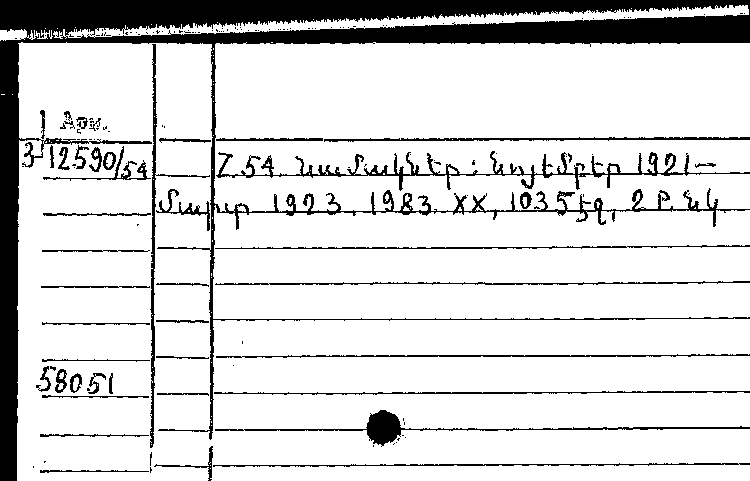 Арм.
3-12590/54
Հ.54. Նամակներ: Նոյեմբեր 1921—
մարտ 1923. 1983. XX, 1035 էջ, 2 թ. նկ.
58051